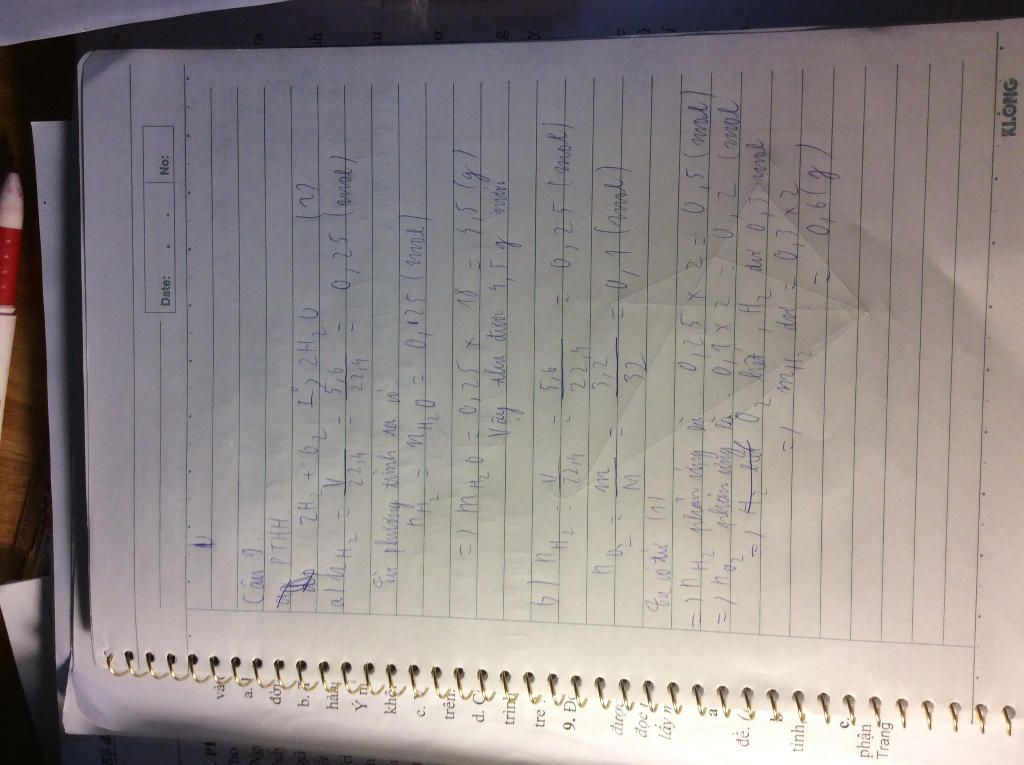 Date:
No:
Câu 9.
PTHH
2H2 + O2 t° → 2H2O (1)
a) nH2 = V/22,4 = 5,6/22,4 = 0,25 (mol)
Từ phương trình ta có
nH2 = nH2O = 0,25 (mol)
=) mH2O = 0,25 x 18 = 4,5 (g)
Vậy thu được 4,5 g nước
b) nH2 = V/22,4 = 5,6/22,4 = 0,25 (mol)
nO2 = m/M = 3,2/32 = 0,1 (mol)
Ta có từ (1)
=) nH2 phản ứng là : 0,25 x 2 = 0,5 (mol)
=) nO2 phản ứng là : 0,1 x 2 = 0,2 (mol
=) H2 hết O2 hết, H2 dư 0,3 mol
=) mH2 dư = 0,3 x 2
= 0,6 (g)
KLONG
a.
b.
c.
trên
d.
trình
tre
9.
được
đọc
lấy n
a
đề.
b
tính
c.
phận
Trang